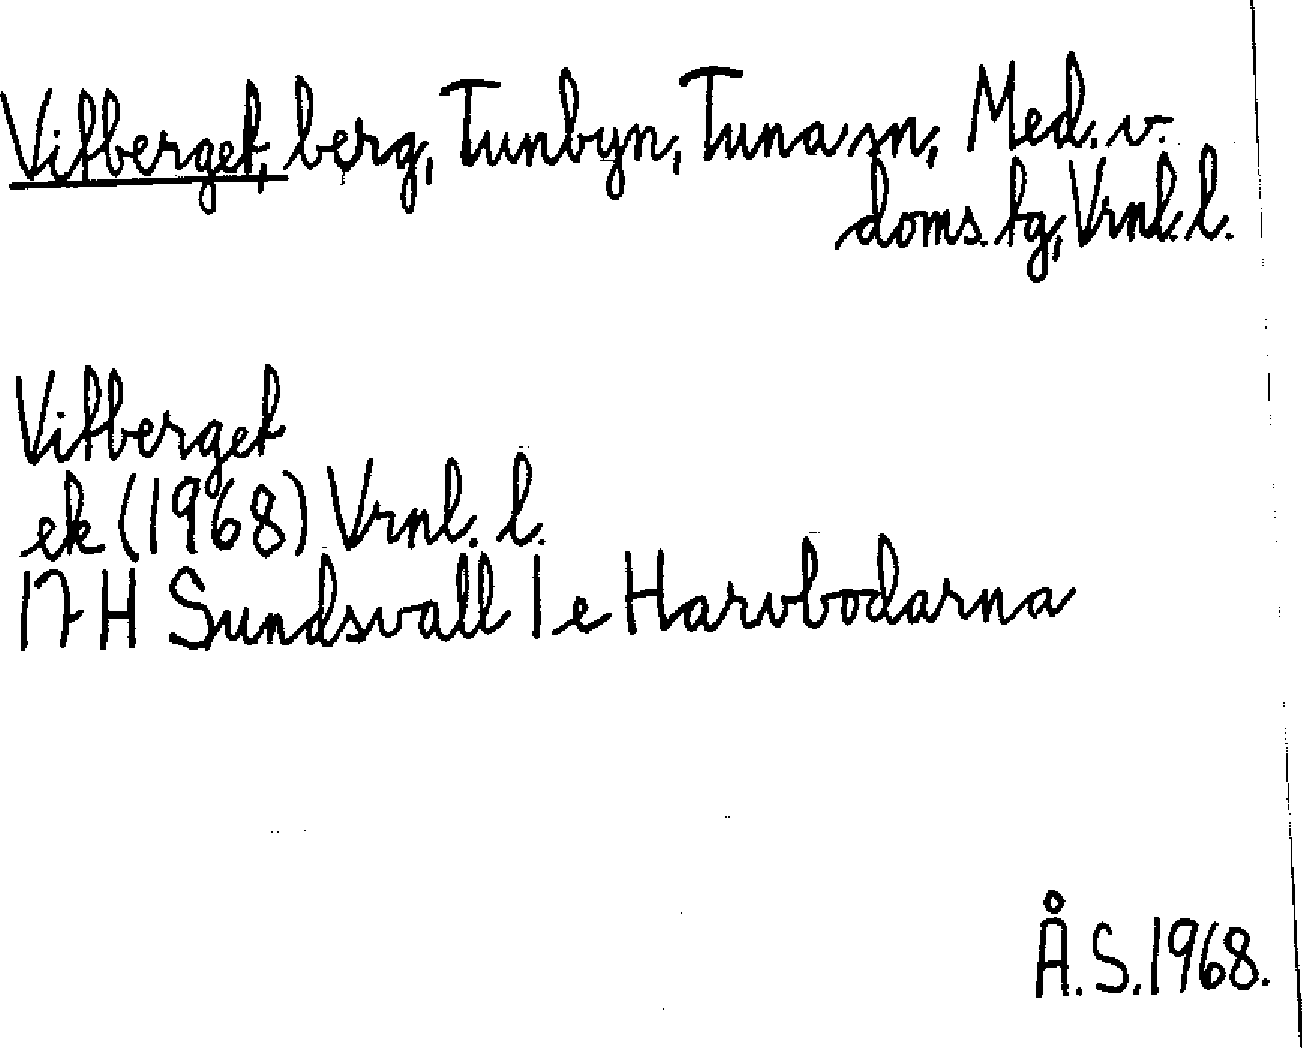 Vitberget, berg, Tunbyn, Tuna sn, Med. v.
doms. tg, Vrnl. l.
Vitberget
ek (1968) Vrnl. l.
17 H Sundsvall 1 e Harvbodarna
Å.S. 1968.